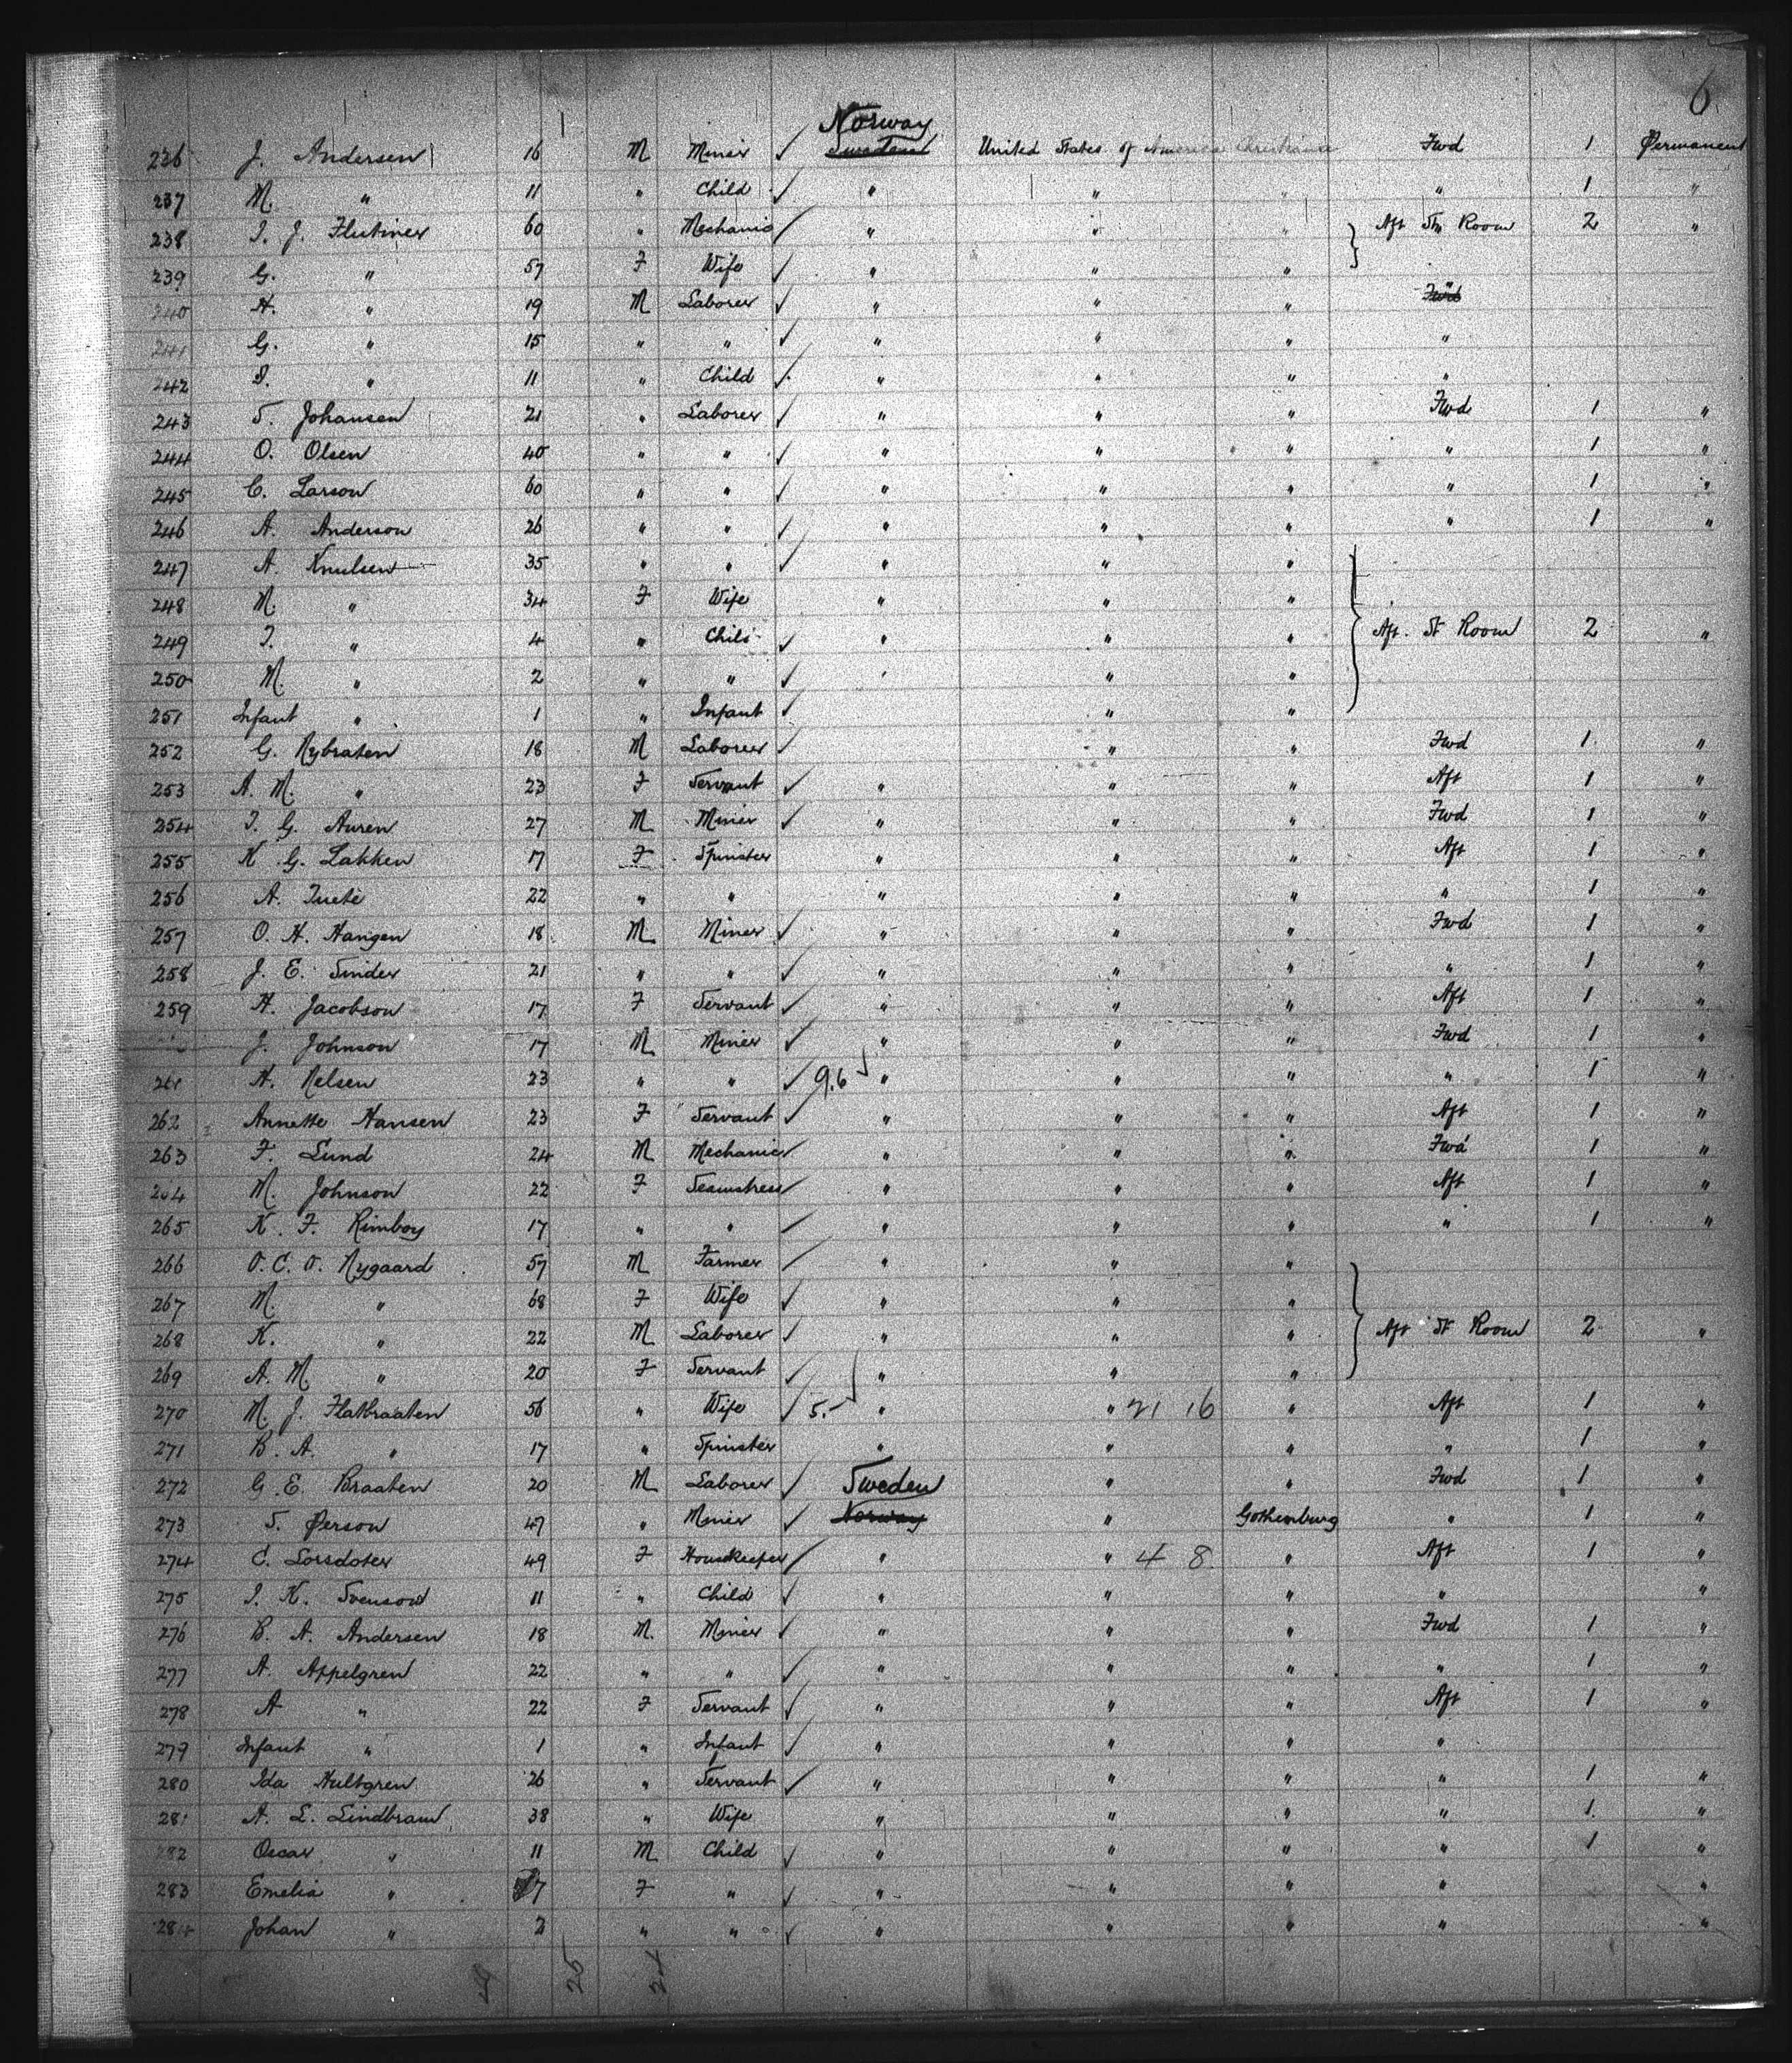 6
Norway
236 J. Andersen 16 M Miner ✓ Sweden United States of America Christiania Fwd 1 Permanent
237 M. " 11 " Child ✓ " " " " 1 "
238 J. J. 60 " Mechanic ✓ " " " Aft St Room 2 "
239 G. " 57 F Wife ✓ " " "
240 A. " 19 M Laborer ✓ " " " Fwd
241 G. " 15 " " ✓ " " " "
242 " 11 " Child ✓ " " " "
243 T. Johansen 21 " Laborer ✓ " " " Fwd 1 "
244 O. Olsen 40 " " ✓ " " " " 1 "
245 C. Larson 60 " " ✓ " " " " 1 "
246 A. Anderson 26 " " ✓ " " " " 1 "
247 A. Knulsen 35 " " ✓ " " "
248 M. " 34 F Wife " " "
249 T. " 4 " Child ✓ " " " Aft. St Room 2 "
250 M. " 2 " " ✓ " " "
251 Infant " 1 " Infant ✓ " "
252 G. Nybraten 18 M Laborer ✓ " " Fwd 1 "
253 A. M. " 23 F Servant ✓ " " " Aft 1 "
254 J. G. Auren 27 M Miner ✓ " " " Fwd 1 "
255 K. G. Lakken 17 F Spinster " " " Aft 1 "
256 A. 22 " " " " " " 1 "
257 O. H. Hangen 18 M Miner ✓ " " " Fwd 1 "
258 J. E. Sinder 21 " " ✓ " " " " 1 "
259 A. Jacobson 17 F Servant ✓ " " " Aft 1 "
J. Johnson 17 M Miner ✓ " " " Fwd 1 "
261 A. Nelsen 23 " " ✓ 9.6 " " " " 1 "
262 Annette Hansen 23 F Servant ✓ " " " Aft 1 "
263 F. Lund 24 M Mechanic ✓ " " " Fwd 1 "
264 M. Johnson 22 F Seamstress ✓ " " " Aft 1 "
265 K. F. Rimboy 17 " " ✓ " " " " 1 "
266 O. C. O. Nygaard 57 M Farmer ✓ " " "
267 M. " 68 F Wife ✓ " " "
268 K. " 22 M Laborer ✓ " " " Aft St Room 2 "
269 A. M " 20 F Servant ✓ " " "
270 M. J. Flatbraaten 56 " Wife ✓ 5. " " 21 16 " Aft 1 "
271 B. A. " 17 " Spinster " " " " 1 "
272 G. E. Braaten 20 M Laborer ✓ Sweden " " Fwd 1 "
273 T. Person 47 " Miner ✓ Norway " Gothenburg " 1 "
274 C. Lorsdoter 49 F Housekeeper ✓ " " 4 8 " Aft 1 "
275 J. K. Svenson 11 " Child ✓ " " " " "
276 B. A. Andersen 18 M. Miner ✓ " " " Fwd 1 "
277 A. Appelgren 22 " " ✓ " " " " 1 "
278 A " 22 F Servant ✓ " " " Aft 1 "
279 Infant " 1 " Infant ✓ " " " "
280 Ida Hultgren 26 " Servant ✓ " " " " 1 "
281 A. L. Lindbraw 38 " Wife " " " " 1 "
282 Oscar " 11 M Child ✓ " " " " 1 "
283 Emelia " 7 F " ✓ " " " " "
284 Johan " 2 " " ✓ " " " " "
25